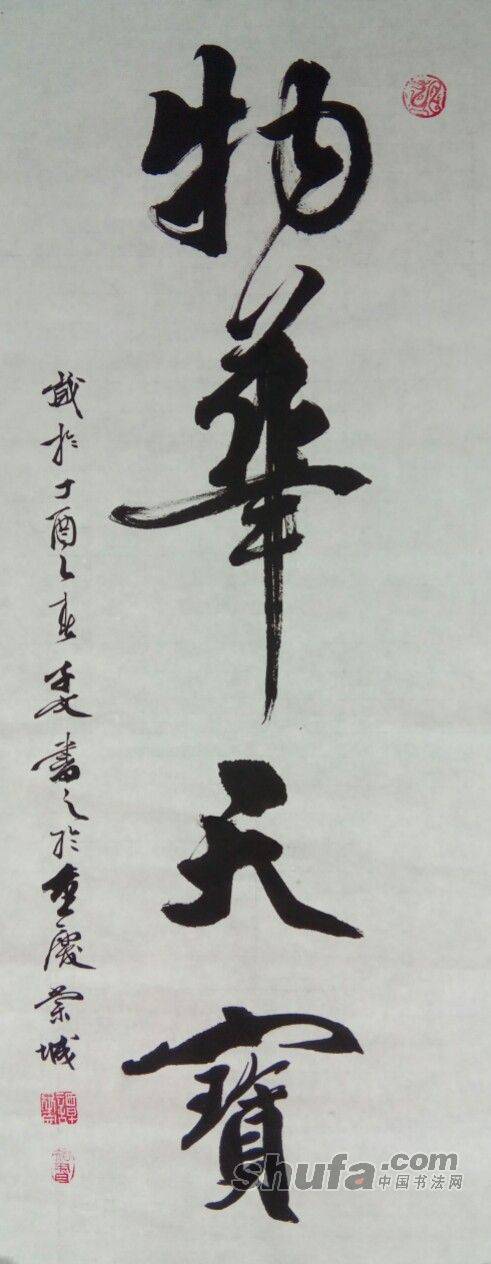 物華天寶
歲於丁酉之春 書之於重慶榮城
shufa.com
中国书法网